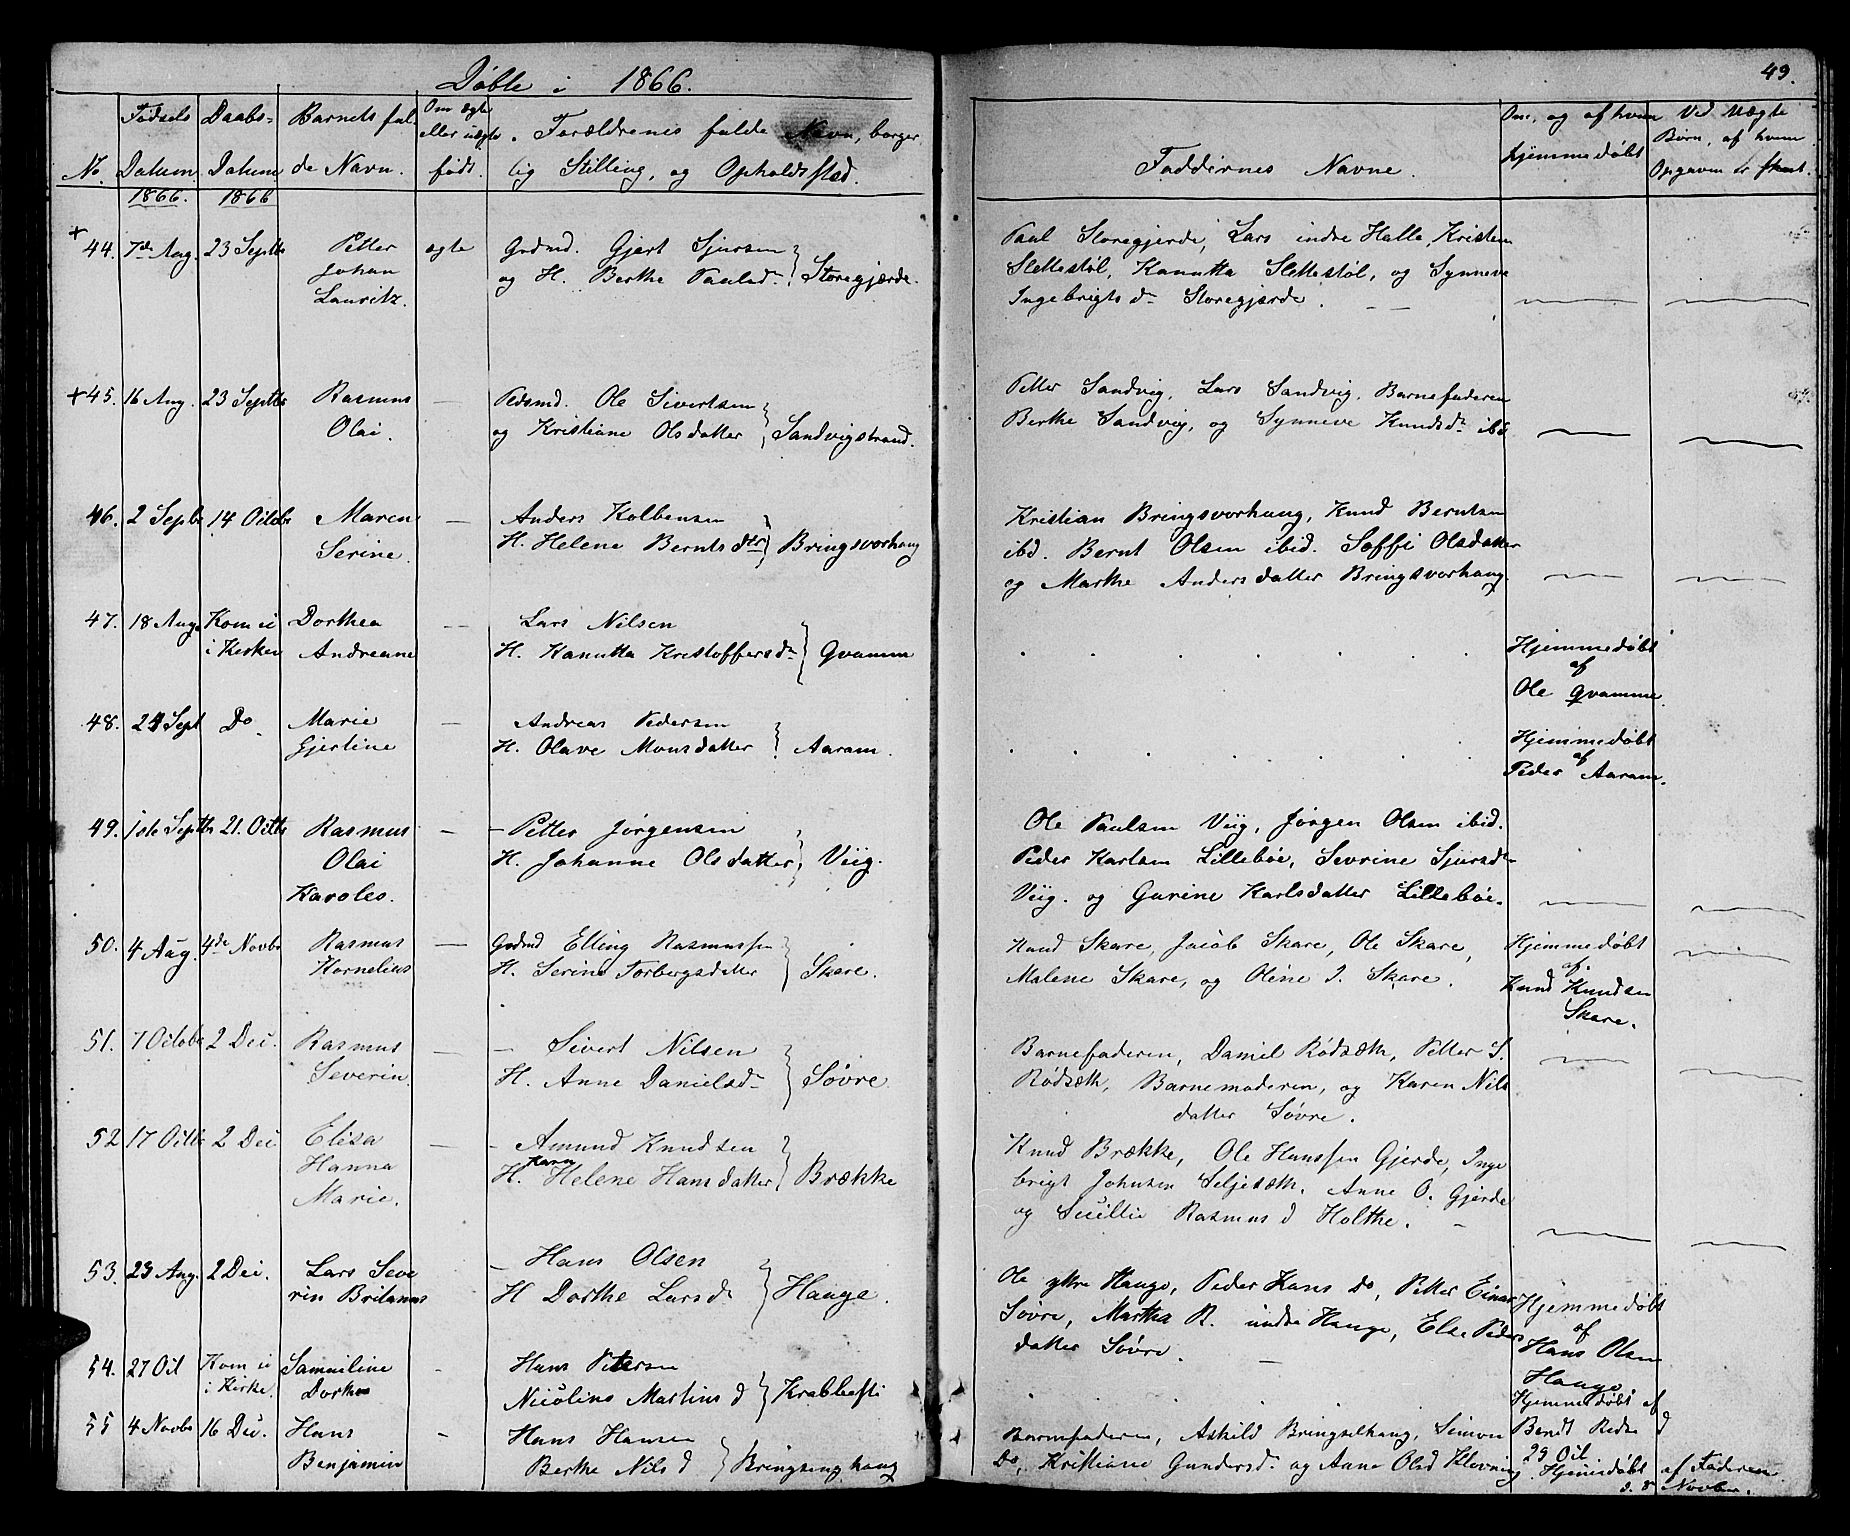 Døbte i 1866.
49.
No.
Fødsels Datum
Daabs- Datum
Barnets fulde Navn.
Om ægte eller uægte født.
Forældrenes fulde Navn, borgerlig Stilling, og Opholdssted.
Faddernes Navne.
Om, og af hvem hjemmedøbt
Ved uægte Børn, af hvem Opgaven er skeet.
1866. 1866
+
44. 7de Aug. 23 Septbr Petter Johan Lauritz. ægte
Grdmd. Gjert Sjursen
og H. Berthe Paulsdr } Storegjærde.
Paul Storegjerde, Lars indre Halle, Kristen
Slettestøl, Kanutta Slettestøl, og Synneve
Ingebrigtsdr Storegjærde.
+45. 16 Aug. 23 Septbr Rasmus Olai. —
Pldsmd. Ole Sivertsen
og Kristiane Olsdatter } Sandvigstrand.
Petter Sandvig, Lars Sandvig, Barnefaderen
Berthe Sandvig, og Synneve Knudsdr ibd
46. 2 Septbr 14 Octobr Maren Serine. —
Anders Kolbensen
H. Helene Berntsdtr } Bringsvorhaug
Kristian Bringsvorhaug, Knud Berntsen
ibd. Bernt Olsen ibid. Søffi Olsdatter
og Marthe Andersdatter Bringsvorhaug.
47. 18 Aug. Kom ei i Kirken Dorthea Andreane —
Lars Nilsen
H. Kanutta Kristoffersdr } Gvamm
Hjemmedøbt
af
Ole Qvamme.
48. 24 Sept Do Marie Gjertine —
Andreas Pedersen
H. Olave Monsdatter } Aaram.
Hjemmedøbt
af
Peder Aaram.
49. 1ste Septbr 21. Octbr Rasmus Olai Karoles. —
— Petter Jørgensen
H. Johanne Olsdatter } Viig.
Ole Paulsen Viig, Jørgen Olsen ibid.
Peder Karlsen Lillebøe, Sevrine Sjursdr
Viig. og Gurine Karlsdatter Lillebøe.
50. 4 Aug. 4de Novbr Rasmus Kornelius —
Grdmd Elling Rasmussen
H. Serine Torbergsdatter } Skare.
Knud Skare, Jacob Skare, Ole Skare,
Malene Skare, og Oline I. Skare.
Hjemmedøbt
af
Knud Knudsen
Skare.
51. 7 Octobr 2 Dec. Rasmus Severin. —
— Sivert Nilsen
H. Anne Danielsdr } Søvre
Barnefaderen, Daniel Rødsæth, Petter S.
Rødsæth, Barnemoderen, og Karen Nils
datter Søvre.
52 17 Octbr 2 Dec Elisa Hanna Marie. —
— Amund Knudsen
H. Karn Helene Hansdatter } Brække
Knud Brække, Ole Hanssen Gjerde, Inge
brigt Johnsen Seljesæth, Anne O. Gjerde
og Sicillie Rasmusd Holthe.
53. 23 Aug. 2 Dec. Lars Seve rin Britanus
— Hans Olsen
H Dorthe Larsdr } Hauge.
Ole ytre Hauge, Peder Hans Do, Petter Einar
Søvre, Martha R. indre Hauge, Else Peders
datter Søvre.
Hjemmedøbt
af
Hans Olsen
Hauge
54. 27 Oct Kom ei i Kirke. Samueline Dorthea —
Hans Petersen
Nicoline Martinsd } Krabbesti
Hjemmedøbt af
Bendt
29 Oct.
55 4 Novbr 16 Dec. Hans Benjamin —
Hans Hansen
Berthe Nilsd } haug
Barnefaderen, Askild Bringselhaug, Simon
Do, Kristiane Gundersd. og Anne Olsd Klevning
Hjemedøbt af Faderen
d. 8 Novbr.